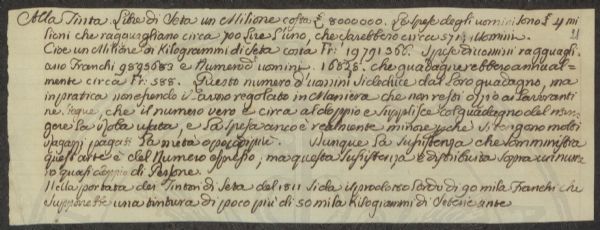 Alla Tinta. Libre di Seta un Milione costa £ 8000000. Le spese degli uomini sono £ 4 mi
lioni che ragguagliano circa 70 Lire l'uno, che sarebbero circa 571 Uomini.
21
Cioè un Milione di Kilogrammi di Seta costa Fr: 19791366. Spese di uomini ragguagli-
ano Franchi 9895683 e Numero d'uomini 16828. che guadagnerebbero annual-
mente circa Fr: 588. Questo numero d'uomini si deduce dal loro guadagno, ma
in pratica non essendo il lavoro regolato in Maniera che non resti ozio ai lavoranti
ne segue, che il numero vero è circa al doppio e supplisce al guadagno del
la usata, e la spesa anco è realmente minore perchè si tengono molti
ragazzi pagati la metà o poco più. Dunque la sussistenza che somministra
quest'arte è del Numero espresso; ma questa sussistenza è distribuita sopra un nume-
ro quasi doppio di Persone.
Nella portata dei Tintori di Seta del 1811 si dà il prodotto lordo di 90 mila Franchi che
supporrebbe una tintura di poco più di 50 mila Kilogrammi di Seterie